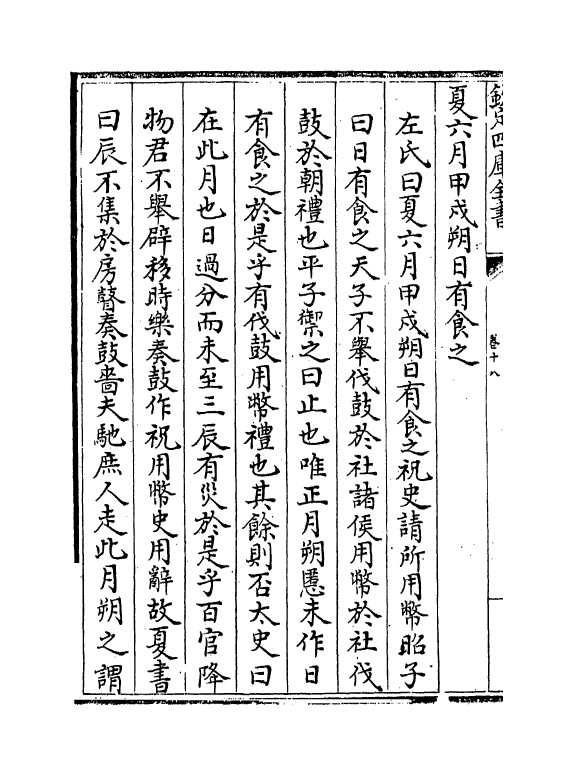 欽定四庫全書
卷十八
夏六月甲戌朔日有食之
左氏曰夏六月甲戌朔日有食之祝史請所用幣昭子
曰日有食之天子不舉伐鼓於社諸侯用幣於社伐
鼓於朝禮也平子禦之曰止也唯正月朔慝未作日
有食之於是乎有伐鼓用幣禮也其餘則否太史曰
在此月也日過分而未至三辰有災於是乎百官降
物君不舉辟移時樂奏鼓作祝用幣史用辭故夏書
曰辰不集於房瞽奏鼓嗇夫馳庶人走此月朔之謂